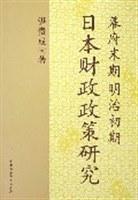 幕府末期明治初期
日本财政政策研究
著